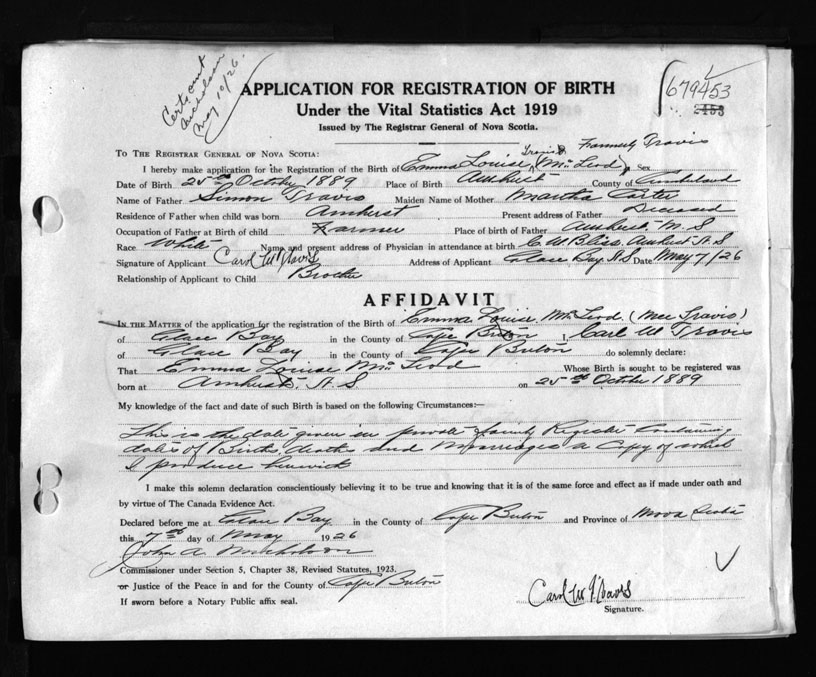 Cert sent
Nicholson
May 10/26.
679453
2453
APPLICATION FOR REGISTRATION OF BIRTH
Under the Vital Statistics Act 1919
Issued by The Registrar General of Nova Scotia.
To The Registrar General of Nova Scotia:
Travis Formerly Travis
I hereby make application for the Registration of Birth of Emma Louise (McLeod) Sex
Date of Birth 25th October 1889 Place of Birth Amherst County of Cumberland
Name of Father Simon Travis Maiden Name of Mother Martha Carter
Residence of Father when child was born Amherst Present address of Father Deceased
Occupation of Father at Birth of Child Farmer Place of birth of Father Amherst, N.S
Race White Name and present address of Physician in attendance at birth C.W. Bliss, Amherst N.S
Signature of Applicant Address of Applicant Glace Bay, N.S Date May 7/26
Relationship of Applicant to Child Brother
AFFIDAVIT
In the Matter of the application for the registration of Birth of Emma Louise McLeod (nee Travis)
of Glace Bay in the County of Cape Breton I, Carl W Travis
of Glace Bay in the County of Cape Breton do solemnly declare:
That Emma Louise McLeod Whose Birth is sought to be registered was
born at Amherst N.S on 25th October 1889
My knowledge of the fact and date of such Birth is based on the following Circumstances:—
This is the date given in private family Register containing
dates of Births, deaths and Marriages a copy of which
I produce herewith
I make this solemn declaration conscientiously believing it to be true and knowing that it is of the same force and effect as if made under oath and
by virtue of The Canada Evidence Act.
Declared before me at Glace Bay in the County of Cape Breton and Province of Nova Scotia
this 7th day of May 1926
John A. Nicholson
Commissioner under Section 5, Chapter 38, Revised Statutes, 1923.
or Justice of the Peace in and for the County of Cape Breton
If sworn before a Notary Public affix seal.
Signature.